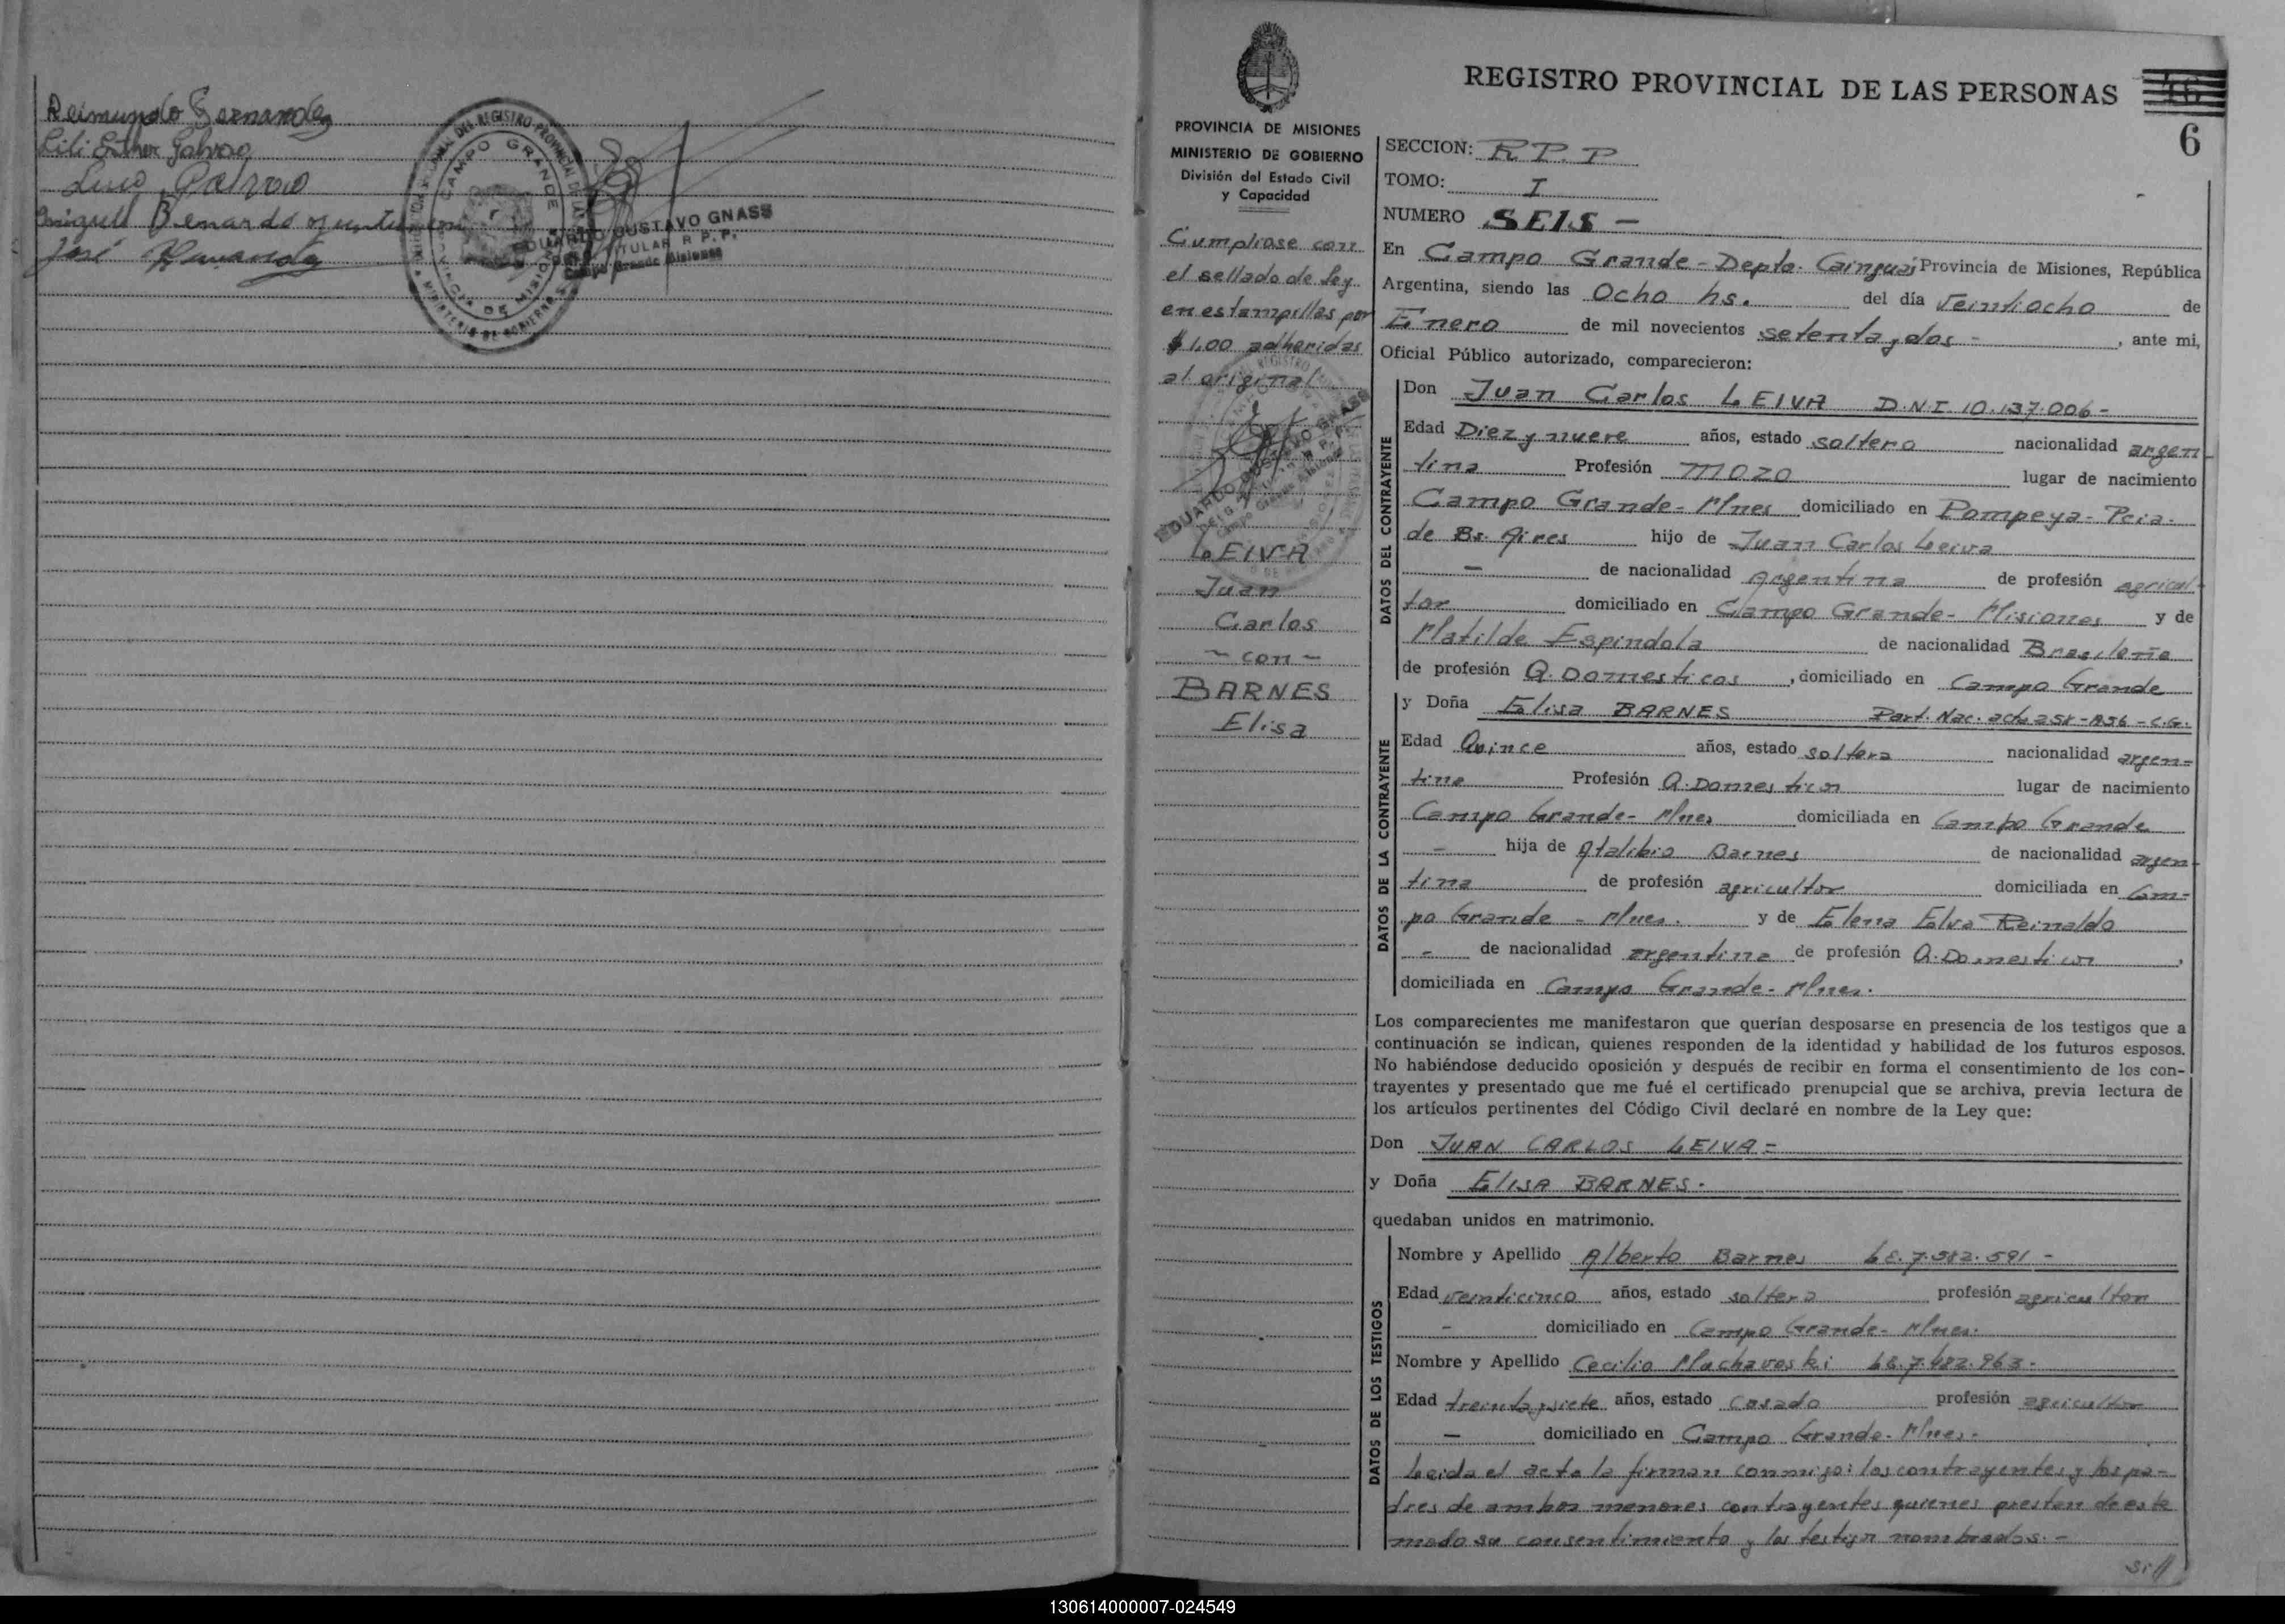 Reimundo Bernardez
Lili Esther Galvao
Lino Galvao
Miguel Benardo
José
CAMPO GRANDE
EDUARDO GUSTAVO GNASS
TITULAR R. P. P.
Campo Grande Misiones
REGISTRO PROVINCIAL DE LAS PERSONAS
16
6
PROVINCIA DE MISIONES
MINISTERIO DE GOBIERNO
División del Estado Civil
y Capacidad
Cumpliose con
el sellado de ley
en estampillas por
$ 1,00 adheridas
al original
EDUARDO GUSTAVO GNASS
LEIVA
Juan
Carlos
- con -
BARNES
Elisa
SECCION: R P. P
TOMO: I
NUMERO SEIS -
En Campo Grande - Depto. Cainguás Provincia de Misiones, República
Argentina, siendo las Ocho hs. del día veintiocho de
Enero de mil novecientos setenta y dos - , ante mi,
Oficial Público autorizado, comparecieron:
DATOS DEL CONTRAYENTE
Don Juan Carlos LEIVA D.N.I 10.137.006 -
Edad Diez y nueve años, estado soltero nacionalidad argen
tina Profesión mozo lugar de nacimiento
Campo Grande - Mnes domiciliado en Pompeya - Pcia.
de Bs. Aires hijo de Juan Carlos Leiva
- de nacionalidad Argentina de profesión agricul-
tor domiciliado en Campo Grande - Misiones y de
Matilde Espindola de nacionalidad Brasileña
de profesión Q. Domesticos , domiciliado en Campo Grande
DATOS DE LA CONTRAYENTE
y Doña Elisa BARNES Part. Nac. acta - C.G.
Edad Quince años, estado soltera nacionalidad argen-
tina Profesión Q. Domesticos lugar de nacimiento
Campo Grande - Mnes domiciliada en Campo Grande
- hija de Atalibio Barnes de nacionalidad argen-
tina de profesión agricultor domiciliada en Cam-
po Grande - Mnes. y de Elena Elva Reinaldo
- de nacionalidad argentina de profesión Q. Domesticos ,
domiciliada en Campo Grande - Mnes.
Los comparecientes me manifestaron que querían desposarse en presencia de los testigos que a
continuación se indican, quienes responden de la identidad y habilidad de los futuros esposos.
No habiéndose deducido oposición y después de recibir en forma el consentimiento de los con-
trayentes y presentado que me fué el certificado prenupcial que se archiva, previa lectura de
los artículos pertinentes del Código Civil declaré en nombre de la Ley que:
Don JUAN CARLOS LEIVA =
y Doña ELISA BARNES.
quedaban unidos en matrimonio.
DATOS DE LOS TESTIGOS
Nombre y Apellido Alberto Barnes L.E. 7.582.591 -
Edad veinticinco años, estado soltero profesión agricultor
- domiciliado en Campo Grande - Mnes.
Nombre y Apellido Cecilio Machavoski L.E. 7.482.963 -
Edad treinta y siete años, estado casado profesión agricultor
- domiciliado en Campo Grande - Mnes.
Leida el acta la firman conmigo: los contrayentes y los pa-
dres de ambos menores contrayentes quienes prestan de este
modo su consentimiento y los testigos nombrados. -
si//
130614000007-024549